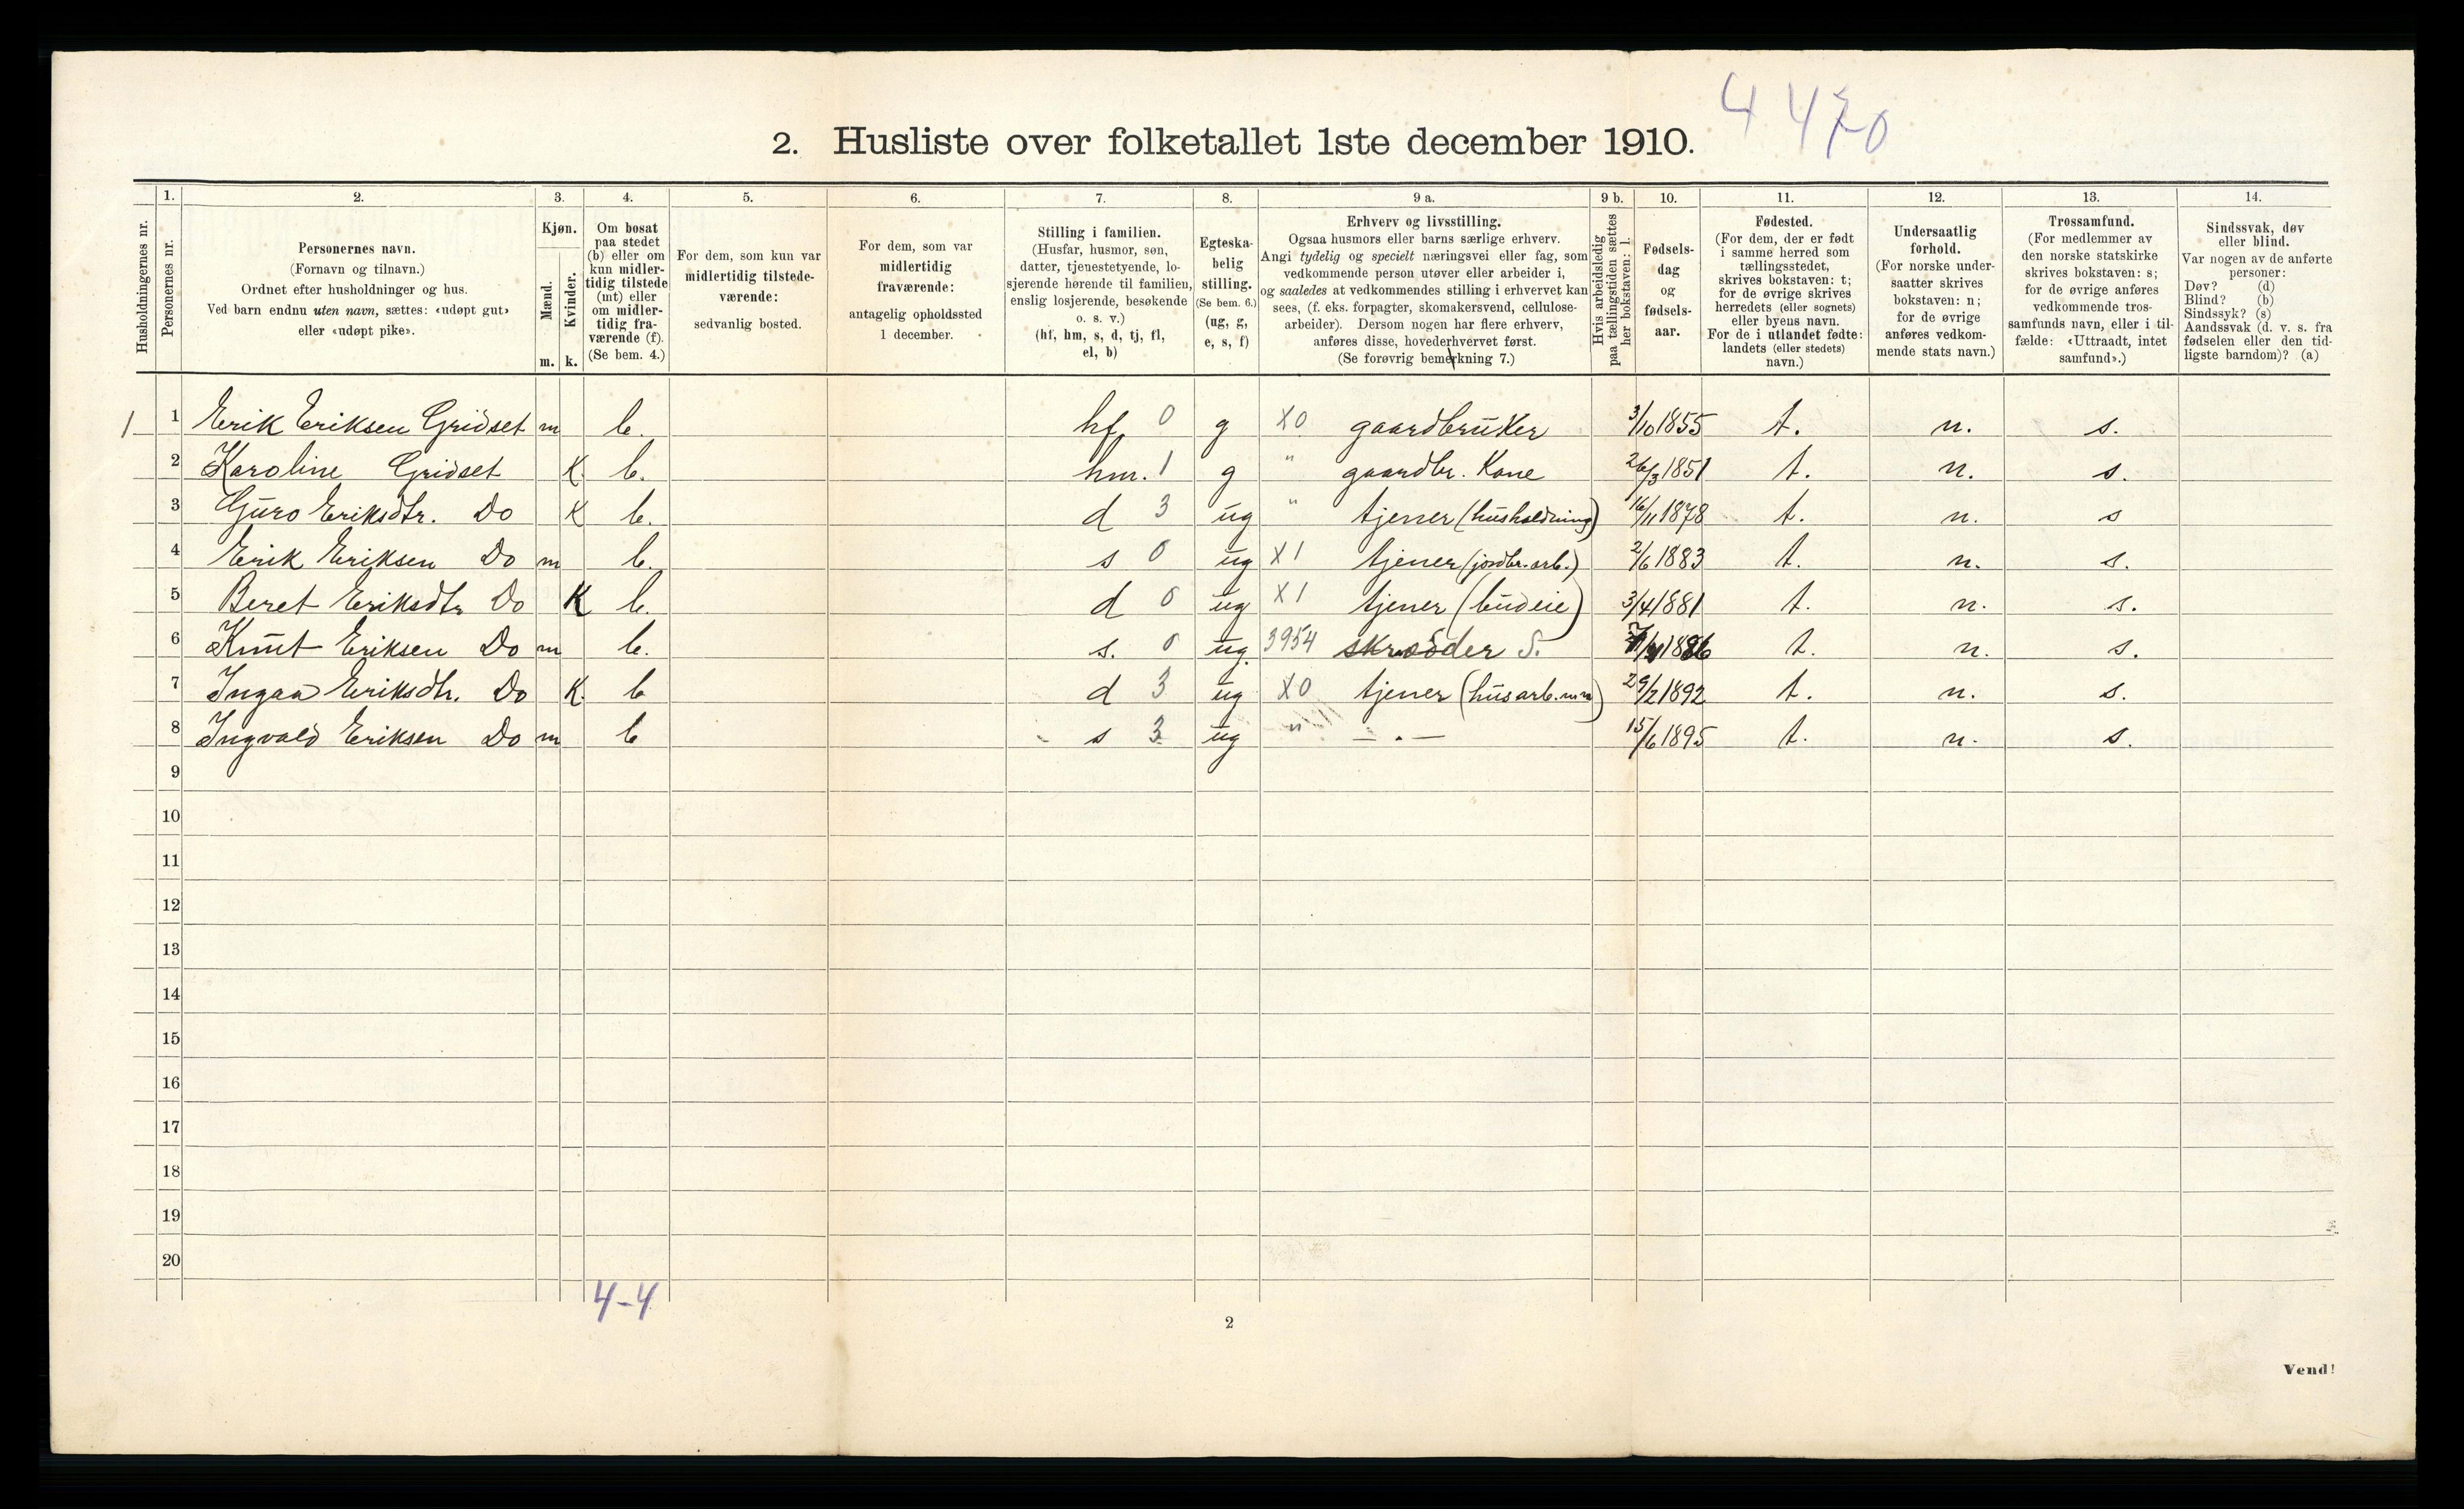 4 470
2. Husliste over folketallet 1ste december 1910.
Husholdningernes nr.
1.
Personernes nr.
2.
Personernes navn.
(Fornavn og tilnavn.)
Ordnet efter husholdninger og hus.
Ved barn endnu uten navn, sættes: «udøpt gut»
eller «udøpt pike».
3.
Kjøn.
Mænd.
Kvinder.
m. k.
4.
Om bosat
paa stedet
(b) eller om
kun midler-
tidig tilstede
(mt) eller
om midler-
tidig fra-
værende (f).
(Se bem. 4.)
5.
For dem, som kun var
midlertidig tilstede-
værende:
sedvanlig bosted.
6.
For dem, som var
midlertidig
fraværende:
antagelig opholdssted
1 december.
7.
Stilling i familien.
(Husfar, husmor, søn,
datter, tjenestetyende, lo-
sjerende hørende til familien,
enslig losjerende, besøkende
o. s. v.)
(hf, hm, s, d, tj, fl,
el, b)
8.
Egteska-
belig
stilling.
(Se bem. 6.)
(ug, g,
e, s, f)
9 a.
Erhverv og livsstilling.
Ogsaa husmors eller barns særlige erhverv.
Angi tydelig og specielt næringsvei eller fag, som
vedkommende person utøver eller arbeider i,
og saaledes at vedkommendes stilling i erhvervet kan
sees, (f. eks. forpagter, skomakersvend, cellulose-
arbeider). Dersom nogen har flere erhverv,
anføres disse, hovederhvervet først.
(Se forøvrig bemerkning 7.)
9 b.
Hvis arbeidsledig
paa tællingstiden sættes
her bokstaven: l.
10.
Fødsels-
dag
og
fødsels-
aar.
11.
Fødested.
(For dem, der er født
i samme herred som
tællingsstedet,
skrives bokstaven: t;
for de øvrige skrives
herredets (eller sognets)
eller byens navn.
For de i utlandet fødte:
landets (eller stedets)
navn.)
12.
Undersaatlig
forhold.
(For norske under-
saatter skrives
bokstaven: n;
for de øvrige
anføres vedkom-
mende stats navn.)
13.
Trossamfund.
(For medlemmer av
den norske statskirke
skrives bokstaven: s;
for de øvrige anføres
vedkommende tros-
samfunds navn, eller i til-
fælde: «Uttraadt, intet
samfund».)
14.
Sindssvak, døv
eller blind.
Var nogen av de anførte
personer:
Døv? (d)
Blind? (b)
Sindssyk? (s)
Aandssvak (d. v. s. fra
fødselen eller den tid-
ligste barndom)? (a)
1 1 Erik Eriksen Gridset m b. hf 0 g X0 gaardbruker 3/10 1855 t. n. s.
2 Karoline Gridset K. b. hm. 1 g " gaardbr. Kone 26/3 1851 t. n. s.
3 Guro Eriksdtr. Do K b. d 3 ug " tjener (husholdning) 16/11 1878 t. n. s
4 Erik Eriksen Do m b. s 0 ug X1 tjener (jordbr. arb.) 2/6 1883 t. n. s.
5 Beret Eriksdtr Do K b. d 0 ug X1 tjener (budeie) 3/4 1881 t. n. s.
6 Knut Eriksen Do m b. s. 0 ug. 3954 skrædder S. 1886 t. n. s.
7 Ingaa Eriksdtr. Do K. b d 3 ug X0 tjener (husarb. m m) 29/2 1892 t. n. s.
8 Ingvald Eriksen Do m b s 3 ug " — . — 15/6 1895 t. n. s.
9
10
11
12
13
14
15
16
17
18
19
20
4-4
2
Vend!